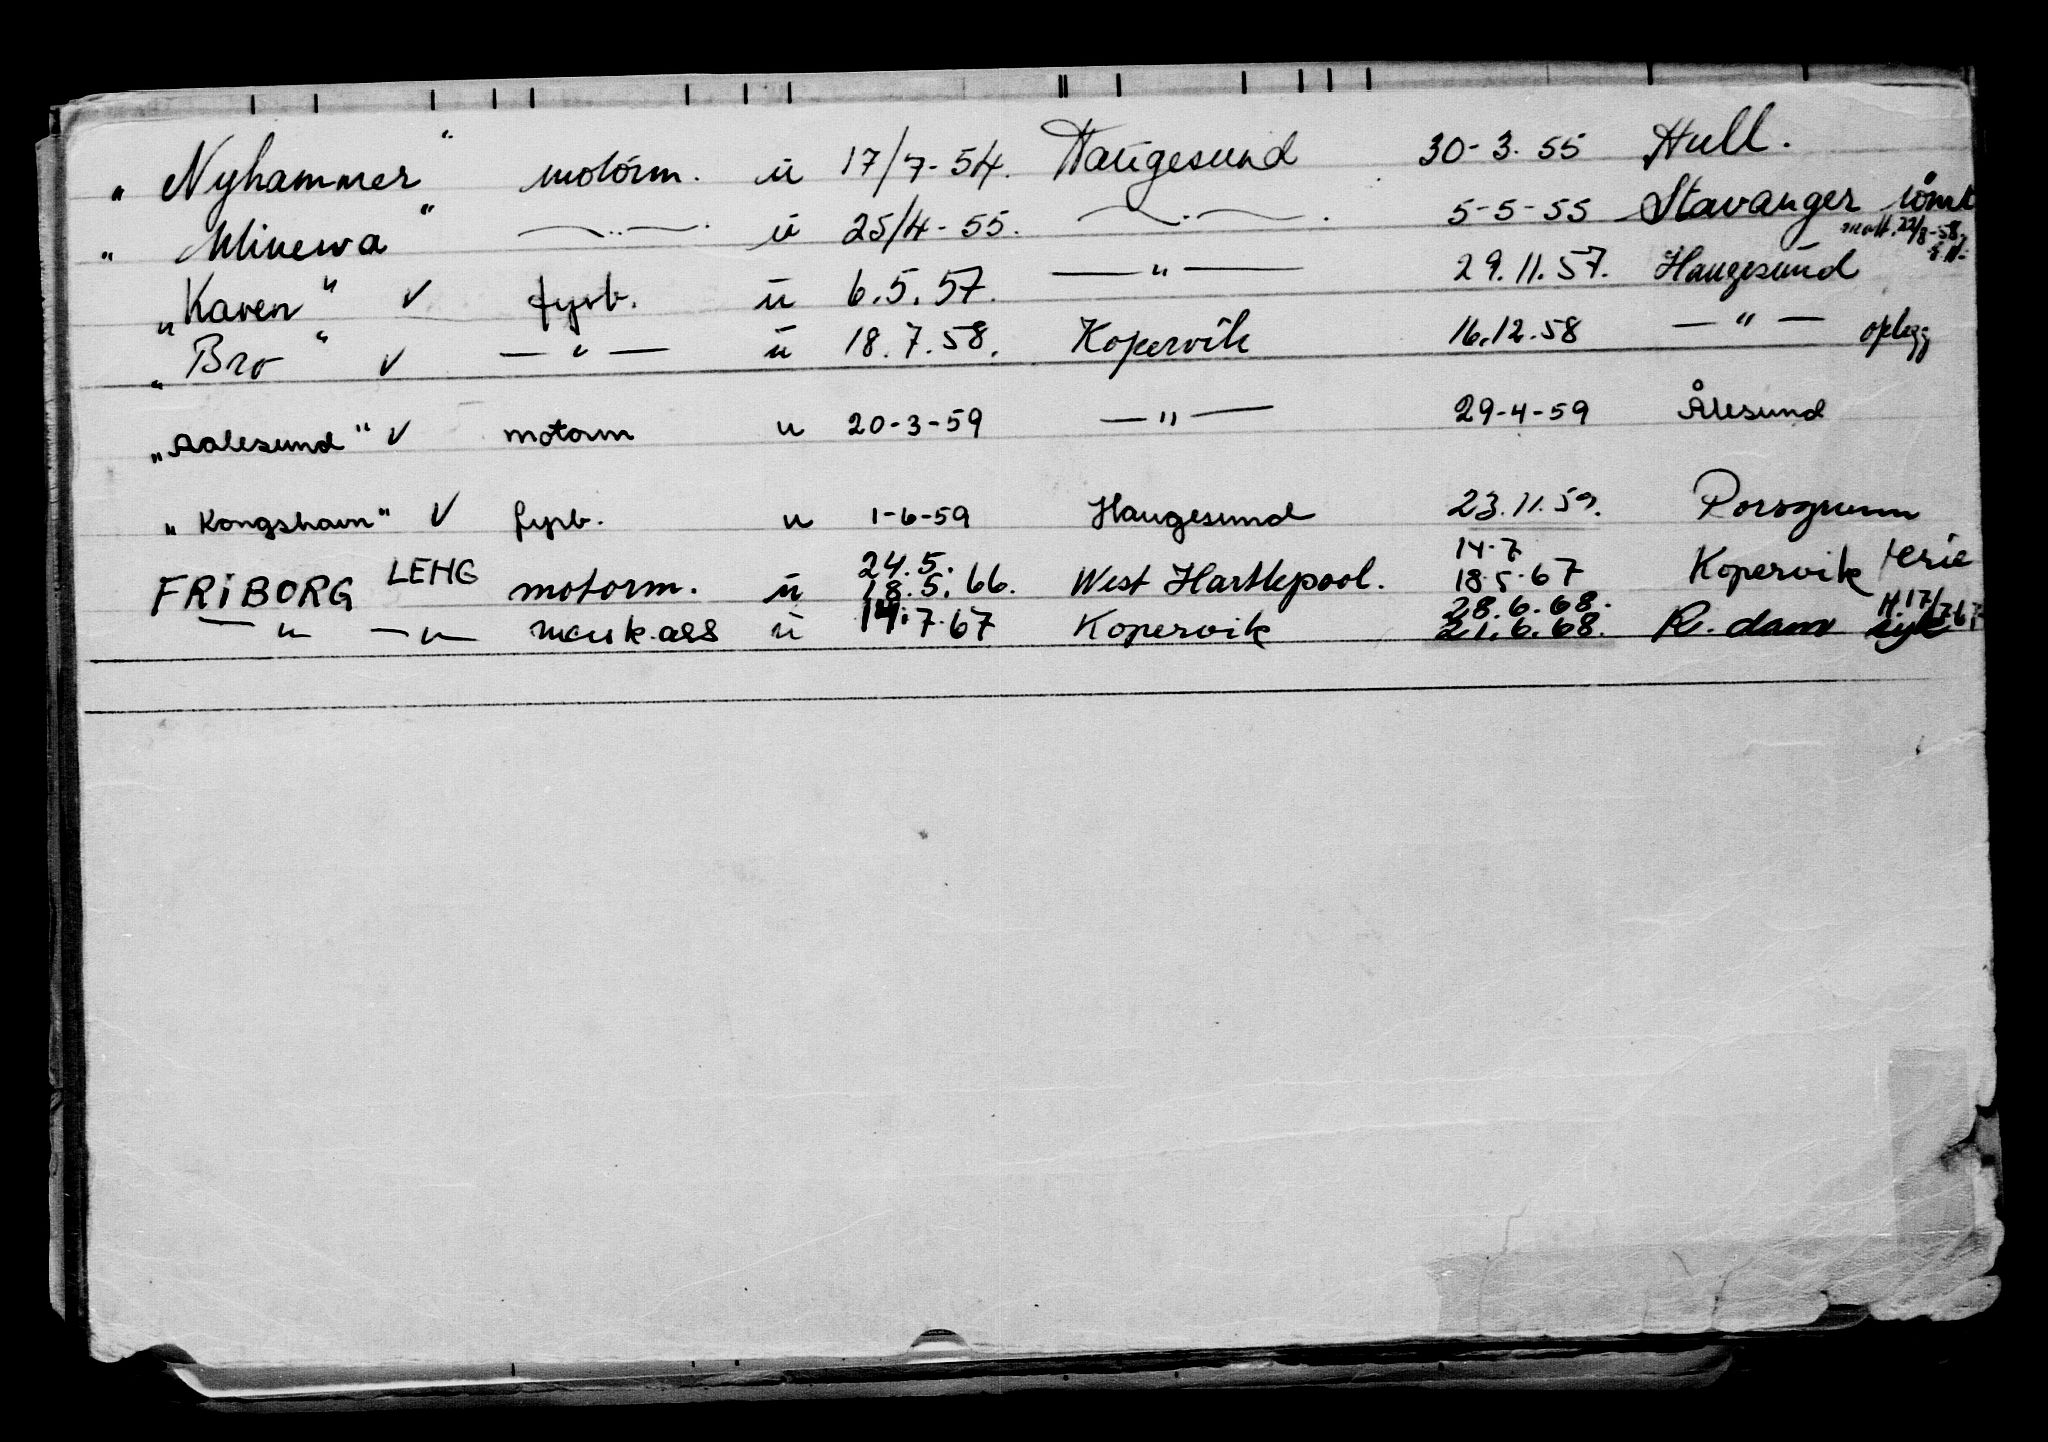 „ Nyhammer “ motorm. u 17/7-54. Haugesund 30-3.55 Hull.
„ Minerva “ —..— u 25/4-55. —.—. 5-5-55 Stavanger
22/8-58
„Karen“ ✓ fyrb. u 6.5.57. —"— 29.11.57. Haugesund
„Bro“ ✓ —"— u 18.7.58. Kopervik 16.12.58 —"— oplegg
„Aalesund“ ✓ motorm u 20-3-59 —"— 29-4-59 Ålesund
„Kongshavn“ ✓ fyrb. u 1-6-59 Haugesund 23.11.59. Porsgrunn
24.5. 14.7
FRiBORG LEHG motorm. u 18.5.66. West Hartlepool. 18.5.67 Kopervik ferie
28.6.68. H.17/7.67
—"— —"— mask.ass u 14.7.67 Kopervik 21.6.68. R.dam syk